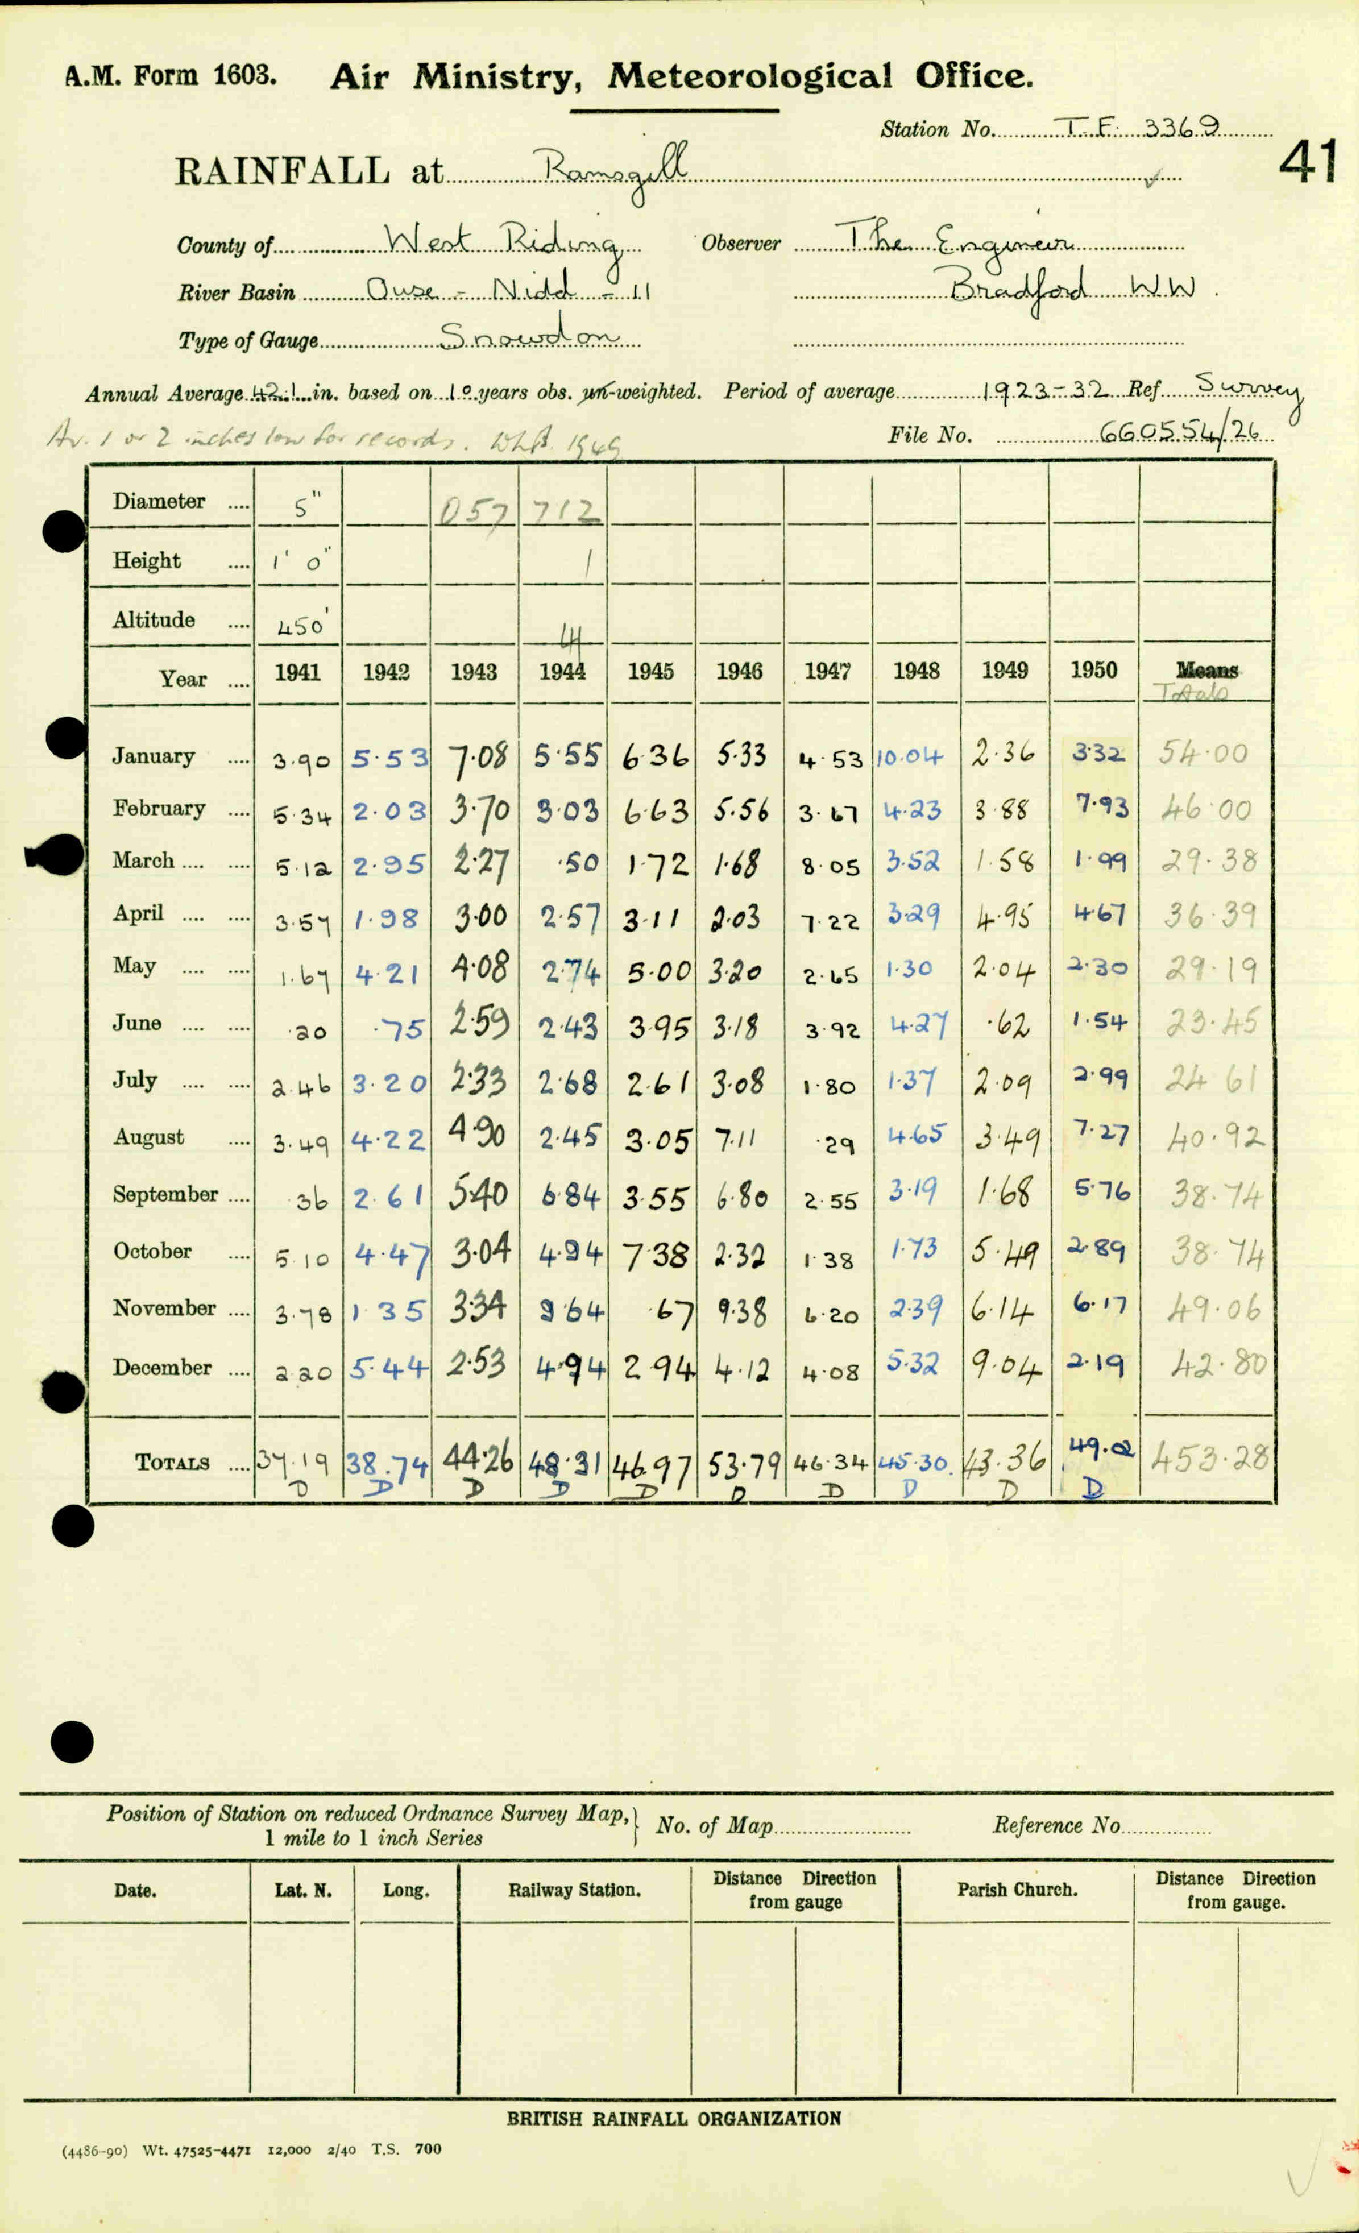 A.M. Form 1603. Air Ministry, Meteorological Office.
Station No. T.F. 3369
41
RAINFALL at Ramsgill ✓
County of West Riding Observer The Engineer
River Basin Ouse - Nidd - 11 Bradford W W.
Type of Gauge Snowdon
Annual Average 42.1 in. based on 10 years obs. un-weighted. Period of average 1923-32 Ref Survey
Av. 1 or 2 inches low for records. 1949 File No. 660554/26
Diameter .... 5" 057 712
Height .... 1' 0" 1
Altitude .... 450'
Year .... 1941 1942 1943 1944 1945 1946 1947 1948 1949 1950 Means
Totals
January .... 3.90 5.53 7.08 5.55 6.36 5.33 4.53 10.04 2.36 3.32 54.00
February .... 5.34 2.03 3.70 3.03 6.63 5.56 3.67 4.23 3.88 7.93 46.00
March .... .... 5.12 2.95 2.27 .50 1.72 1.68 8.05 3.52 1.58 1.99 29.38
April .... .... 3.57 1.98 3.00 2.57 3.11 2.03 7.22 3.29 4.95 4.67 36.39
May .... .... 1.67 4.21 4.08 2.74 5.00 3.20 2.65 1.30 2.04 2.30 29.19
June .... .... .20 .75 2.59 2.43 3.95 3.18 3.92 4.27 .62 1.54 23.45
July .... .... 2.46 3.20 2.33 2.68 2.61 3.08 1.80 1.37 2.09 2.99 24.61
August .... 3.49 4.22 4.90 2.45 3.05 7.11 .29 4.65 3.49 7.27 40.92
September .... .36 2.61 5.40 6.84 3.55 6.80 2.55 3.19 1.68 5.76 38.74
October .... 5.10 4.47 3.04 4.94 7.38 2.32 1.38 1.73 5.49 2.89 38.74
November .... 3.78 1.35 3.34 9.64 .67 9.38 6.20 2.39 6.14 6.17 49.06
December .... 2.20 5.44 2.53 4.94 2.94 4.12 4.08 5.32 9.04 2.19 42.80
TOTALS .... 37.19 38.74 44.26 48.31 46.97 53.79 46.34 45.30. 43.36 49.02 453.28
D D D D D D D D D D
Position of Station on reduced Ordnance Survey Map,
1 mile to 1 inch Series
No. of Map Reference No.
Date. Lat. N. Long. Railway Station. Distance Direction from gauge Parish Church. Distance Direction from gauge.
BRITISH RAINFALL ORGANIZATION
(4486-90) Wt. 47525-4471 12,000 2/40 T.S. 700